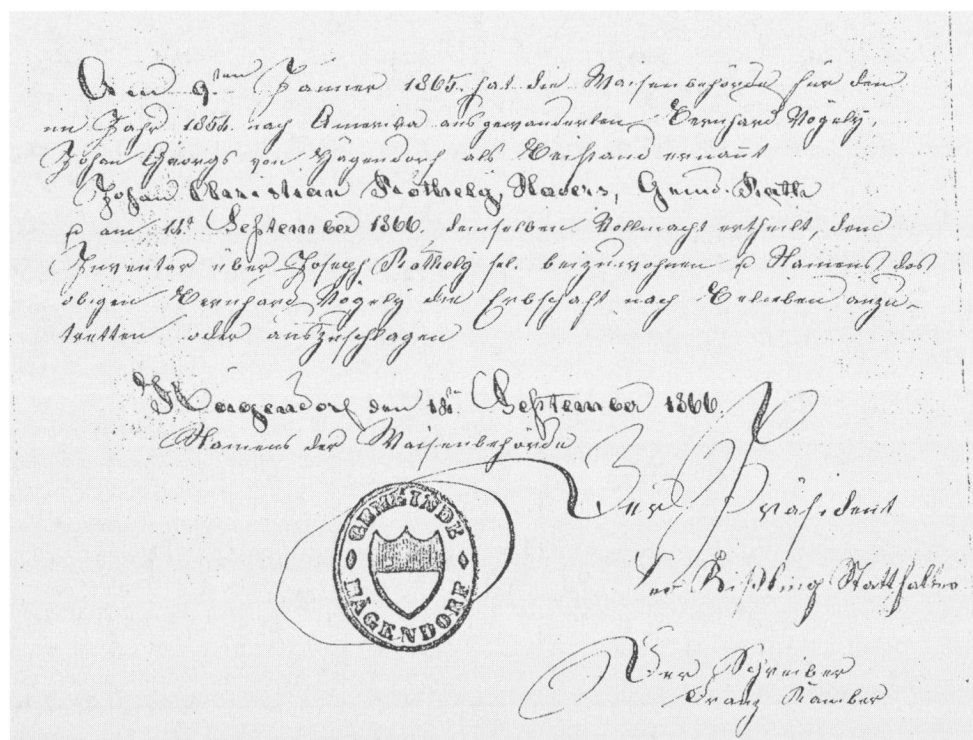 Am 9.ten Jänner 1865. hat die Waisenbehörde für den
im Jahr 1854. nach Amerika ausgewanderten Bernhard Vögely,
Johan Georgs von Hägendorf als Beistand ernañt
Johan Christian Röthely, Xavers, Gemd. Rath
u am 18t September 1866. demselben Vollmacht ertheilt, dem
Inventar über Joseph Röthely sel. beizuwohnen u Namens des
obigen Bernhard Vögely die Erbschaft nach Belieben anzu-
tretten oder auszuschlagen
Hägendorf den 18t. September 1866.
Namens der Waisenbehörde
Der Präsident
Kißling Statthalter
Der Schreiber
Franz Kamber
GEMEINDE
HÄGENDORF